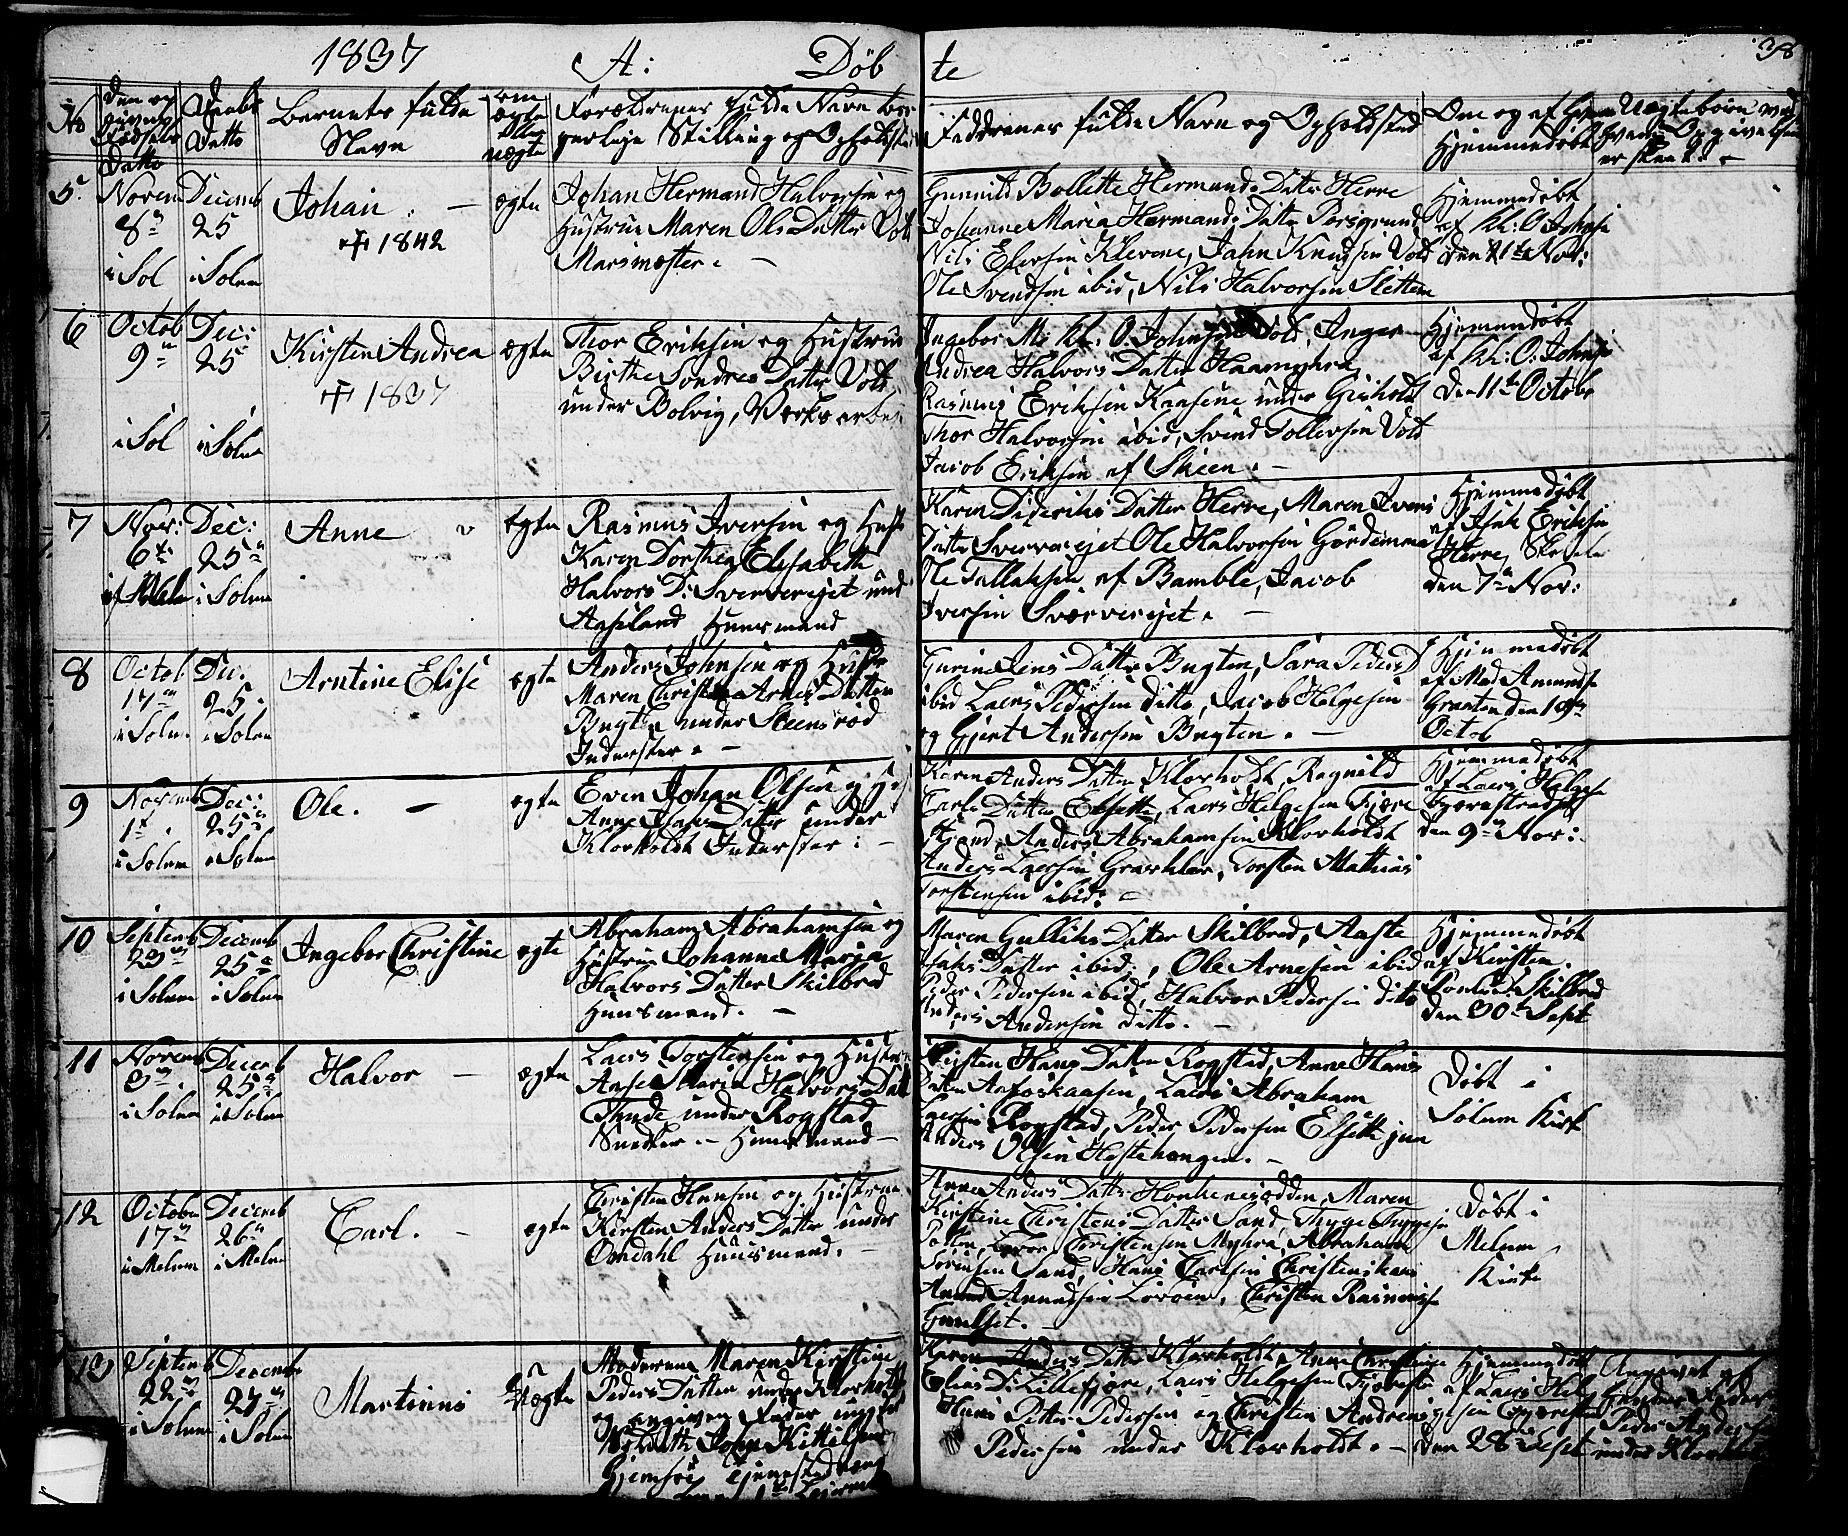 1837 A: Döb te 38
No
Den og
givens
Fødsels
Datto
Daabs
Datto
Barnets fulde
Navn
om
ægte
eller
uægte
Forældrenes fulde Navn bor-
gerlige Stilling og Opholdsted
Faddrenes fulde Navn og Opholdsted
Om og af Hvem
Hjemmedøbt
Uægte børn ved
hvem Angivelsen
er skeet
5.
Novem
8de
i Sol
Decemb
25
i Solum
Johan. —
✝ 1842
ægte
Johan Hermand Halvorsen og
Hustrue Maren Ols Datter Vold
Marsmester. —
Gunnild Bollette Hermands Datter Herre
Johanne Maria Hermands Datter Porsgrund
Nils Elersen Klevene, Jahn Knudsen Vold
Ole Svendsen ibid, Nils Halvorsen Sletten
Hjemmedøbt
af Kl: O. Johnse
den 21te Nov:
6
Octob
9de
i Sol
Dec:
25
i Solum
Kirsten Andrea
✝ 1837
ægte
Thor Eriksen og Hustrue
Birthe Sondres Datter Vold
under Bolvig, Værksarbei
Ingebor M. Kl: O. Johnsens Vold, Inger
Andrea Halvors Datter Haamyhra
Rasmus Eriksen Kaasene under Gisholdt
Thor Halvorsen ibid, Svend Tollevsen Vold
Jacob Eriksen af Skeen. —
Hjemmedøbt
af Kl: O: Johnse
den 11te Octobr
7
Nov:
6te
Dec:
25de
i Solum
Anne
ægte
Rasmus Iversen og Hust
Karen Dorthea Elisabeth
Halvors D: Sververejet und
Aasland Huusmand
Karen Dideriks Datter Herre, Maren Ivers
Datter Sververejet Ole Halvorsen Gördemma
Ole Tallaksen af Bamble, Jacob
Iversen Sværverejet. —
Hjemmedøbt
af Isak Eriksen
Herre,
den 7de Nov:
8
Octob
17de
i Solu.
Dec.
25.
i Solum
Arntine Elise
ægte
Anders Johnsen og Hustr
Maren Christine Arnes Datter
Bugten under Steensrød
Inderster. —
Gurine Jens Datter Bugten, Sara Peders D
ibid Laers Pedersen ditto, Jacob Helgesen
og Gjert Andersen Bugten. —
Hjemmedøbt
af Mad Amunds
Graaten den 19de
Octob
9
Novemb
1te
i Solum
Dec:
25de
i Solum
Ole. —
ægte
Even Johan Olsen og Hu
Anne Isaks Datter under
Klovholdt Inderster: —
Karen Anders Datter Klovholdt, Ragnild
Carls Datter Elsette, Laers Helgesen Fjære
Strand, Anders Abrahamsen Klovholdt
Anders Laersen Graaklev, Torsten Mathias
Torstensen ibid: —
Hjemmedøbt
af Laers Helgese
Fjærestranden
den 9de Nov: —
10
Septemb
29de
i Solum
Decemb
25de
i Solum
Ingebor Christine
ægte
Abraham Abrahamsen og
Hustrue Johanne Maria
Halvors Datter Skilbred
Huusmand. —
Maren Gulliks Datter Skilbred, Aaste
Isaks Datter ibid:, Ole Arnesen ibid
Peder Pedersen ibid, Halvor Pedersen ditto
Anders Andersen ditto. —
Hjemmedøbt
af Kirsten
Skilbred
den 30te Sept
11
Novemb
9de
i Solum
Decemb
25de
i Solum
Halvor —
ægte
Laers Torstensen og Hustrue
Aase Maria Halvors Datt
Tynde under Rogstad
Snedker. — Huusmand —
Kirsten Hans Datter Rogstad, Anne Hans
Datter Aafoskaasen, Laers Abraham
Laersen Rogstad, Peder Pedersen Elsette jun
Anders Olsen Hestehougen. —
Døbt i
Solum Kirk
12
Octobr
17de
i Melum
Decemb
26de
i Melum
Carl. —
ægte
Christen Hansen og Hustrue
Kirsten Anders Datter under
Omdahl Huusmand. —
Anne Anders Datter Honkenesødden, Maren
Kirstine Christens Datter Sand, Thyge Thygese
Christensen Myhra, Abraham
Sörensen Sand, Hans Carlsen Christenskaas
Amund Amundsen Lovoen, Christen Rasmusse
Gunelset. —
Døbt i
Melum
Kirke
13
Septemb
22de
i Solum
Decemb
27de
i Solum
Martinus
uægte
Moderen Maren Kirstine
Peders Datter under Klovholt
og angiven Fader ungkar
John Kittelsen
Gjemsøe tjenestedreng
Karen Anders Datter Klovholdt, Anne Christine
Elias D. Lillefjære, Laers Helgesen Fjærestr
Hans Petter Pedersen og Christen Andreas
Pedersen under Klovholdt. —
Hjemmedøbt
af Laers Hel-
gesen Fjærestran
den 28de Sept
Angivet af
Peder Anderse
under Klovhol